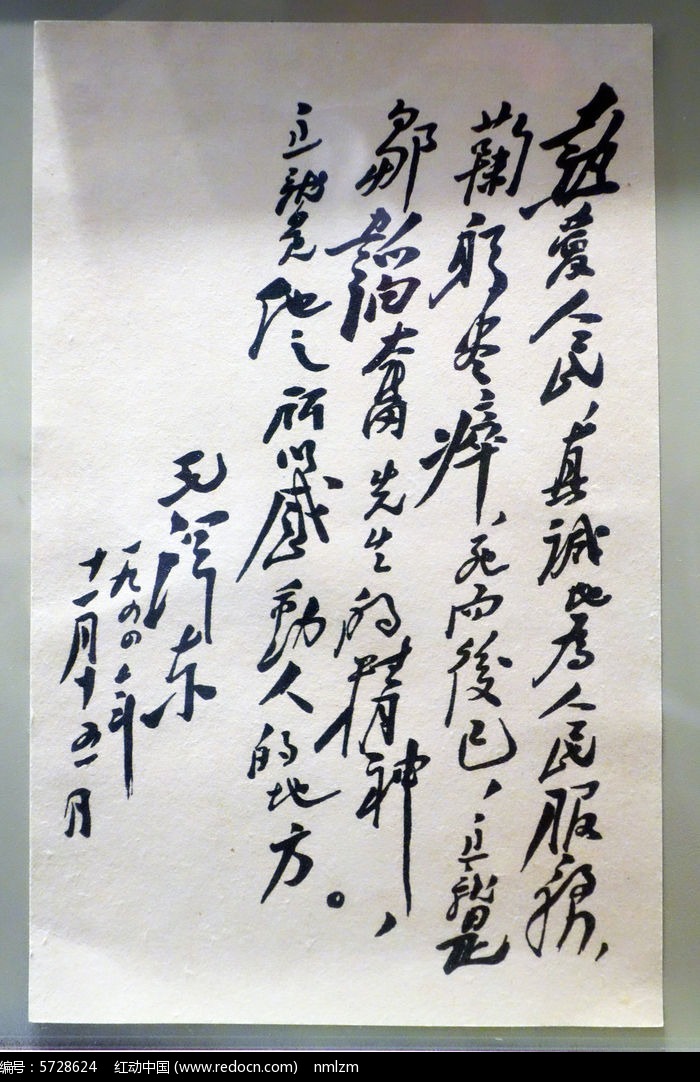 熱愛人民，真誠地為人民服務，
鞠躬尽瘁，死而後已，这就是
鄒韜奮先生的精神，
这就是他之所以感動人的地方。
毛泽东
一九四四年
十一月十五日
编号：5728624 红动中国 (www.redocn.com) nmlzm